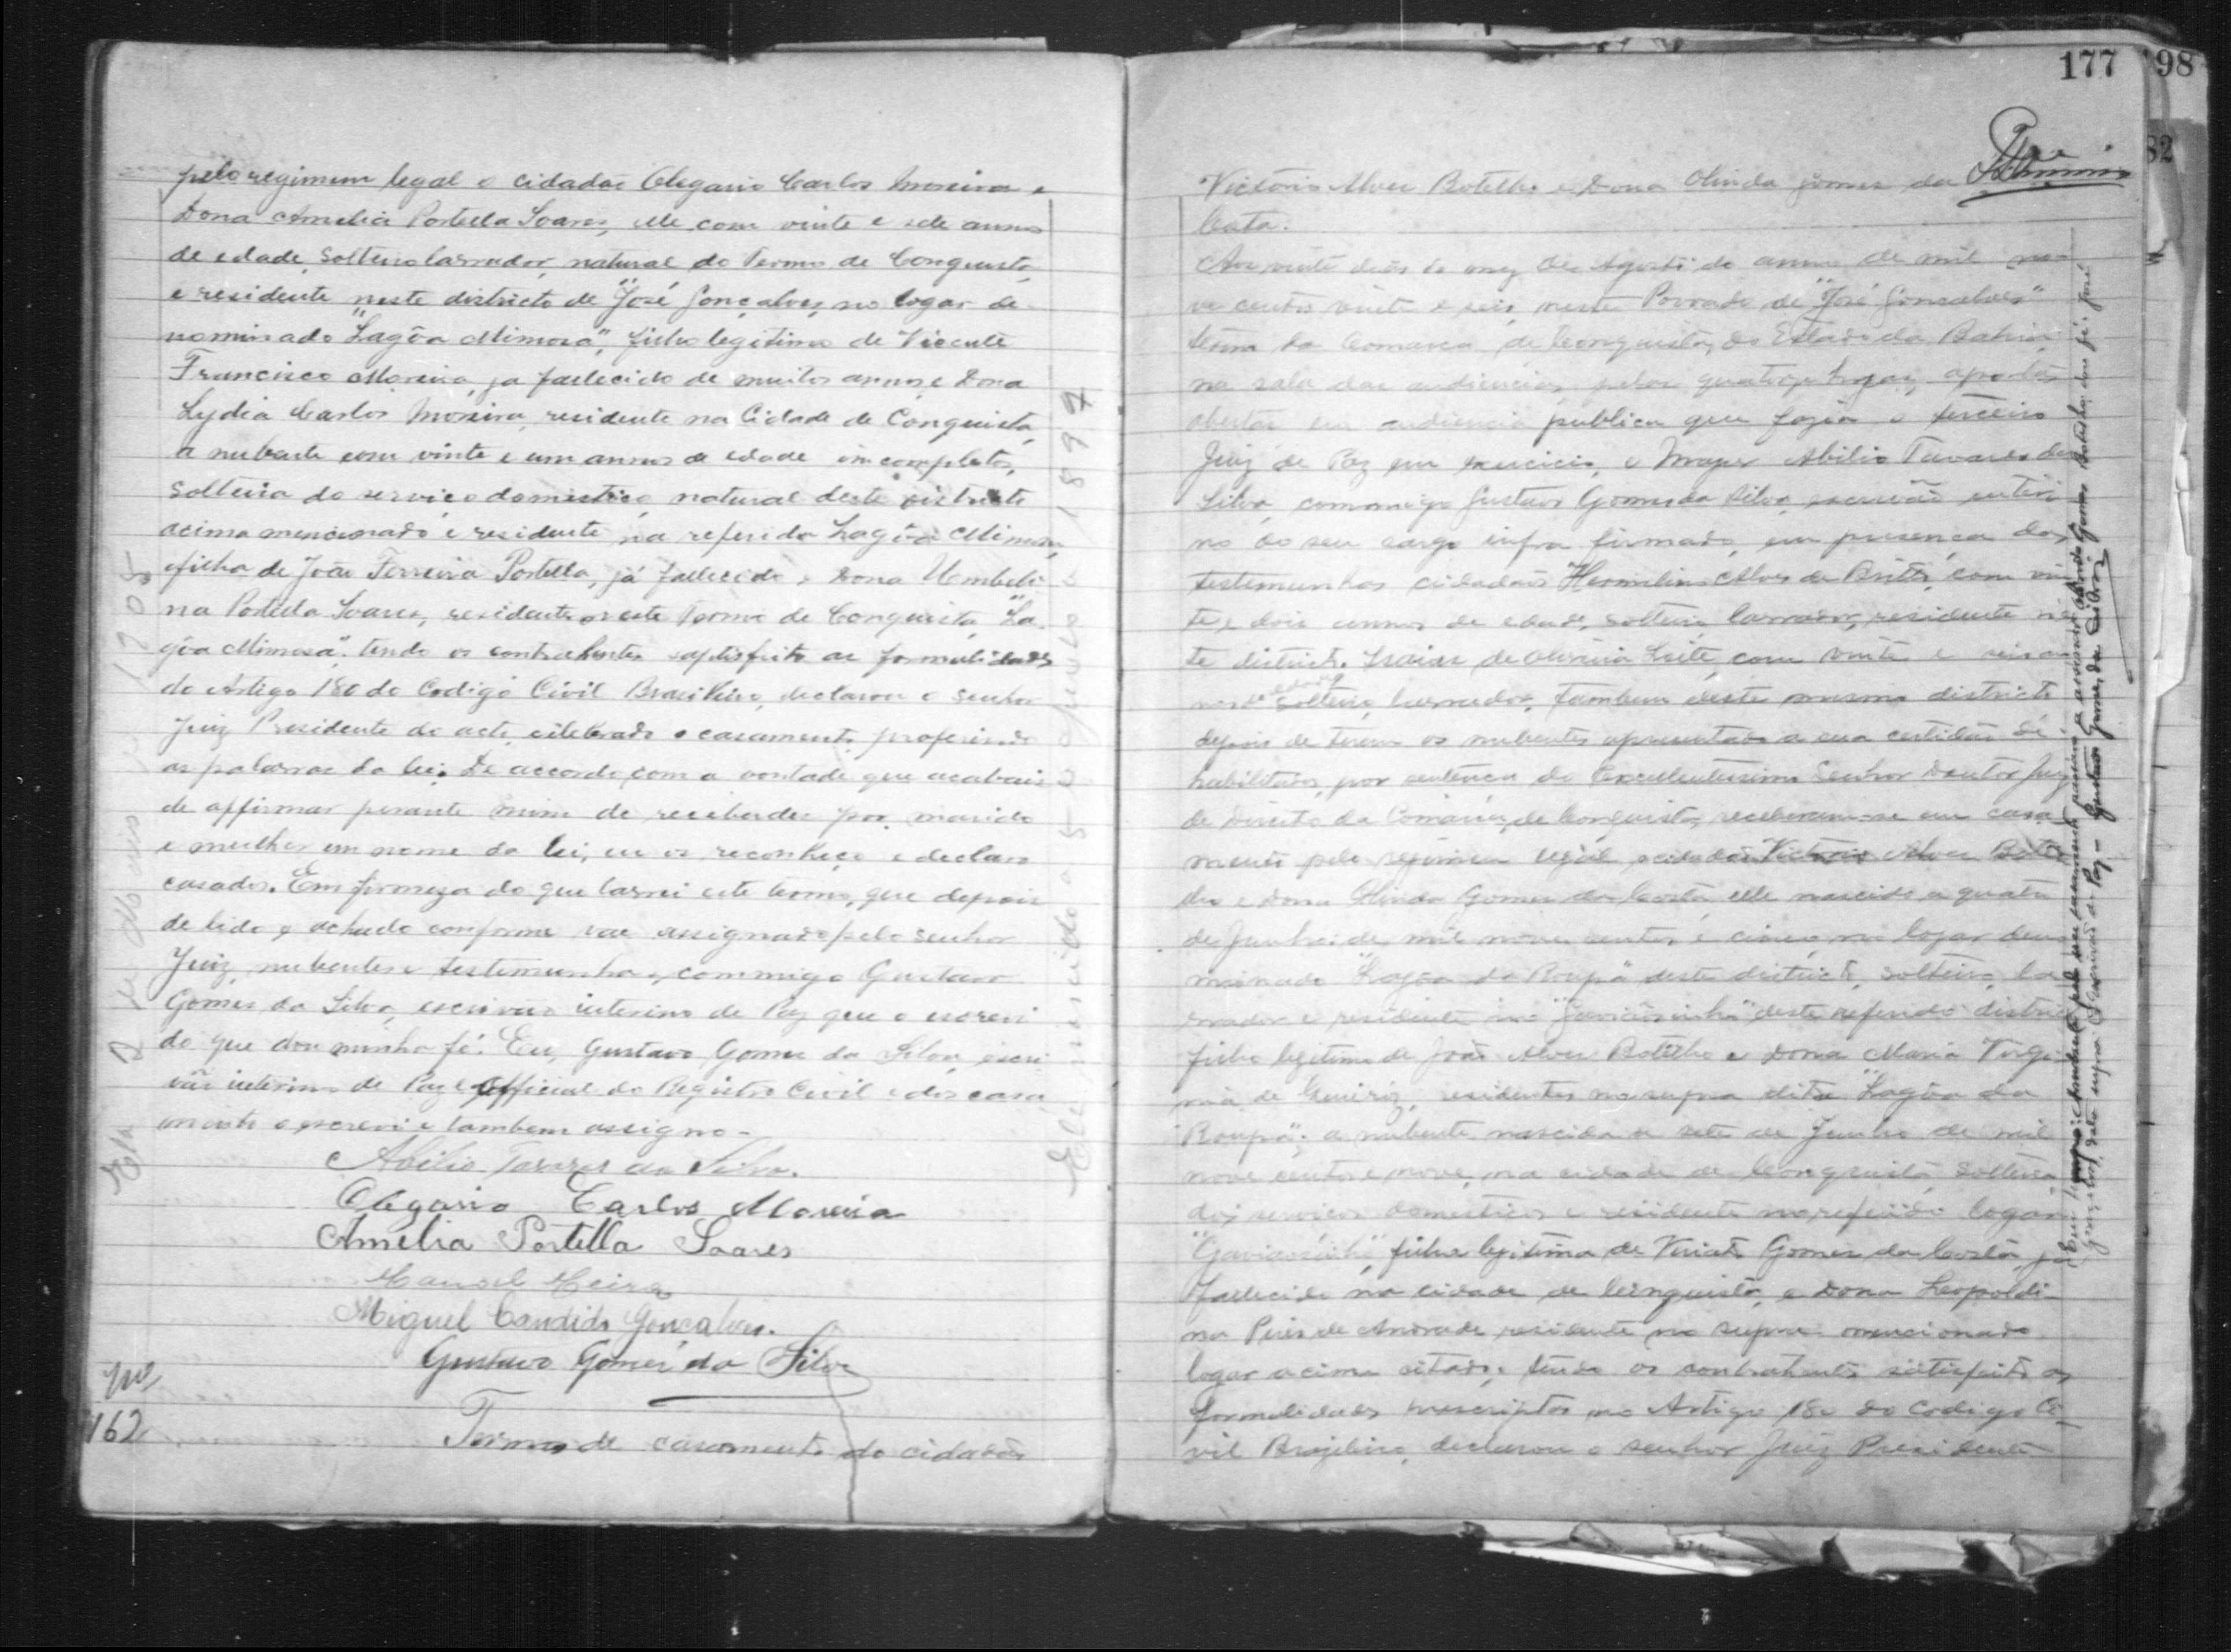 pelo regimem legal o cidadão Olegario Carlos Moreira e
Dona Amelia Portella Soares, elle com vinte e sete annos
de edade, solteiro lavrador, natural do Termo de Conquista,
e residente neste districto de "José Gonçalves, no logar de-
nominado "Lagôa Mimosa", filho legitimo de Vicente
Francisco Moreira, ja fallecido de muitos annos e Dona
Lydia Carlos Moreira, residente na Cidade de Conquista,
a nubente com vinte e um annos de edade imcompletos,
solteira do serviço domestico, natural deste districto
acima mencionado e residente na referida Lagôa Mimosa,
filha de João Ferreira Portella, já fallecido e Dona Umbeli-
na Portella Soares, residente neste Termo de Conquista, "La-
gôa Mimosa". tendo os contrahentes satisfeito as formalidades
do Artigo 180 do Codigo Civil Brasileiro, declarou o senhor
Juiz Presidente do acto, celebrado o casamento, proferindo
as palavras da lei. De accordo com a vontade que acabais
de affirmar perante mim de receberdes por marido
e mulher em nome da lei, eu os reconheço e declaro
casados. Em firmeza do que lavrei este termo, que depois
de lido e achado conforme vae assignado pelo senhor
Juiz, nubentes e testemunhas, commigo Gustavo
Gomes da Silva, escrivão interino de Paz que o escrevi
do que dou minha fé. Eu, Gustavo Gomes da Silva, escri-
vão interino de Paz e Official do Registro Civil e dos casa
mentos o escrevi e tambem assigno-
Abilio Tavares da Silva.
Olegario Carlos Moreira
Amelia Portella Soares
Manoel Meira
Miguel Candido Gonçalves.
Gustavo Gomes da Silva
Nº
162
Termo de casamento do cidadão
Ele nascido a 5 de Junho de 1897
177
98
82
Victorio Alves Botelho e Dona Olinda Gomes da
Costa.
Aos vinte dias do mez de Agosto do anno de mil no-
ve centos vinte e seis, neste Povoado de "José Gonsalves"
termo da Comarca de Conquista, do Estado da Bahia
na sala das audiencias, pelas quatorze horas, a portas
abertas em audiencia publica que fazia o terceiro
Juiz de Paz em exercicio, o Major Abilio Tavares da
Silva, commigo Gustavo Gomes da Silva, escrivão interi-
no do seu cargo infra firmado, em presença das
testemunhas cidadãos Hermilino Alves de Britto, com vin-
te e dois annos de edade, solteiro, lavrador, residente nes-
te districto. Izaias de Oliveira Leite, com vinte e seis an-
nos de edade solteiro, lavrador, tambem deste mesmo districto
depois de terem os nubentes apresentado a sua certidão de
habilitados, por sentença do Excellentissimo Senhor Doutor Juiz
de Direito da Comarca de Conquista, receberam-se em casa
mento pelo regimem legal, o cidadão Victorio Alves Bote
lho e Dona Olinda Gomes da Costa, elle nascido a quatro
de Junho de mil nove centos e cinco no logar deno
minado "Lagôa da Roupa" deste districto, solteiro, la
vrador e residente no "Gaviãosinho" deste referido districto
filho legitimo de João Alves Botelho e Dona Maria Virgi-
nia de Queiróz, residentes na supra dita "Lagôa da
Roupa"; a nubente nascida a sete de Junho de mil
nove centos e nove, na cidade de Conquista, solteira,
dos serviços domesticos e residente no referido logar
"Gaviãosinho", filha legitima de Viriato Gomes da Costa, ja
fallecido na cidade de Conquista, e Dona Leopoldi-
na Pires de Andrade residente no supra mencionado
logar acima citado; tendo os contrahentes satisfeito as
formalidades prescriptas no Artigo 180 do Codigo Ci-
vil Brazileiro, declarou o senhor Juiz Presidente